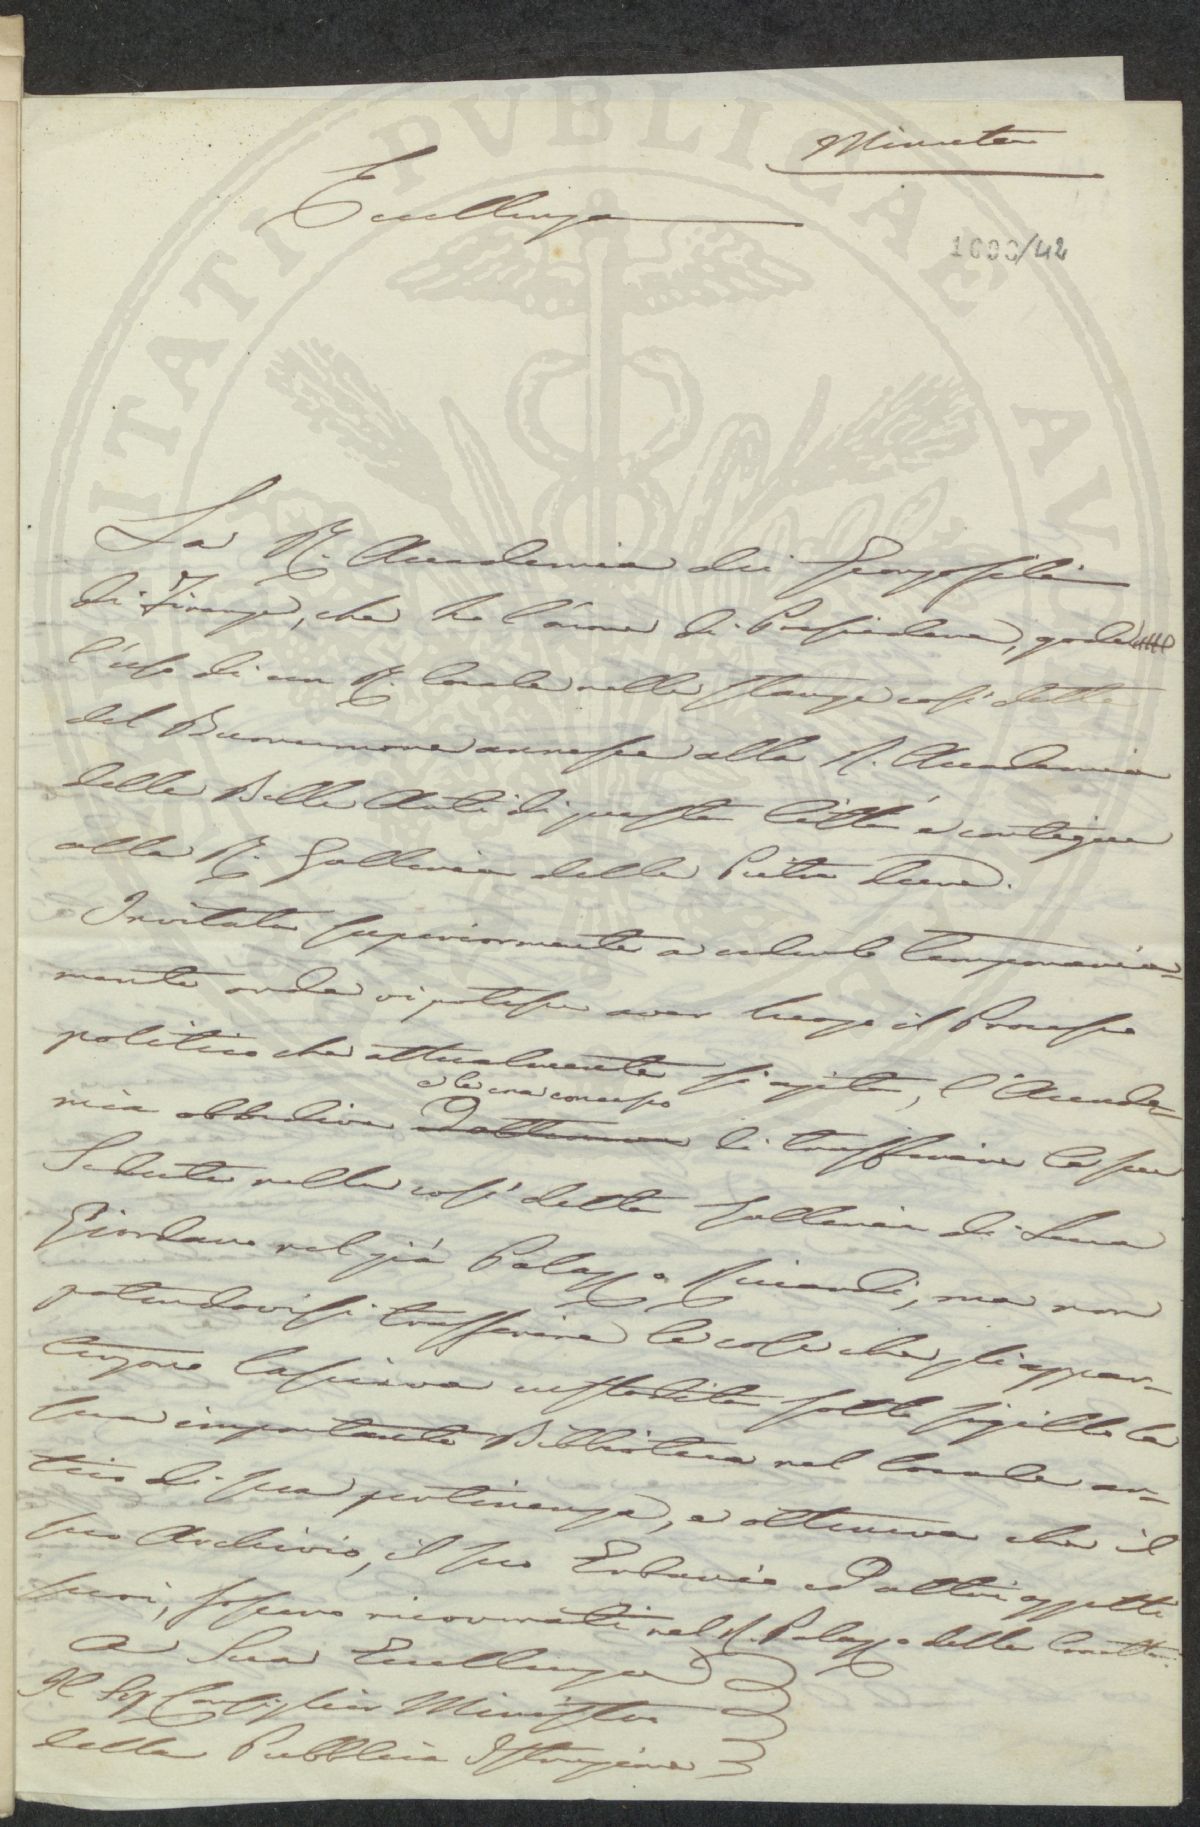 Minuta
Eccellenza
1000/42
La R. Accademia dei Georgofili
di Firenze, che ho l'onore di Presiedere, gode
l'uso di un R. locale nelle stanze così dette
del Buonumore annesse alla R. Accademia
delle Belle Arti di questa Città e contigue
alla R. Galleria delle Pietre Dure.
Invitata superiormente a cederlo temporaria-
mente onde vi potesse aver luogo il Processo
politico che attualmente si agita, l'Accade-
e le era concesso
mia obbediva di trasferire le sue
Sedute nella così detta Galleria di Luca
Giordano nel già Palazzo Riccardi, ma non
potendovisi trasferire le cose che gli appar-
tengono lasciava custodita sotto sigillo la
sua importante Biblioteca nel locale an-
tico di sua pertinenza, e otteneva che il
suo Archivio, il suo Erbario ed altri oggetti
suoi, fossero ricoverati nel R. Palazzo della Crocetta.
A Sua Eccellenza
Il Sig. Consiglier Ministro
della Pubblica Istruzione
PVBLICAE